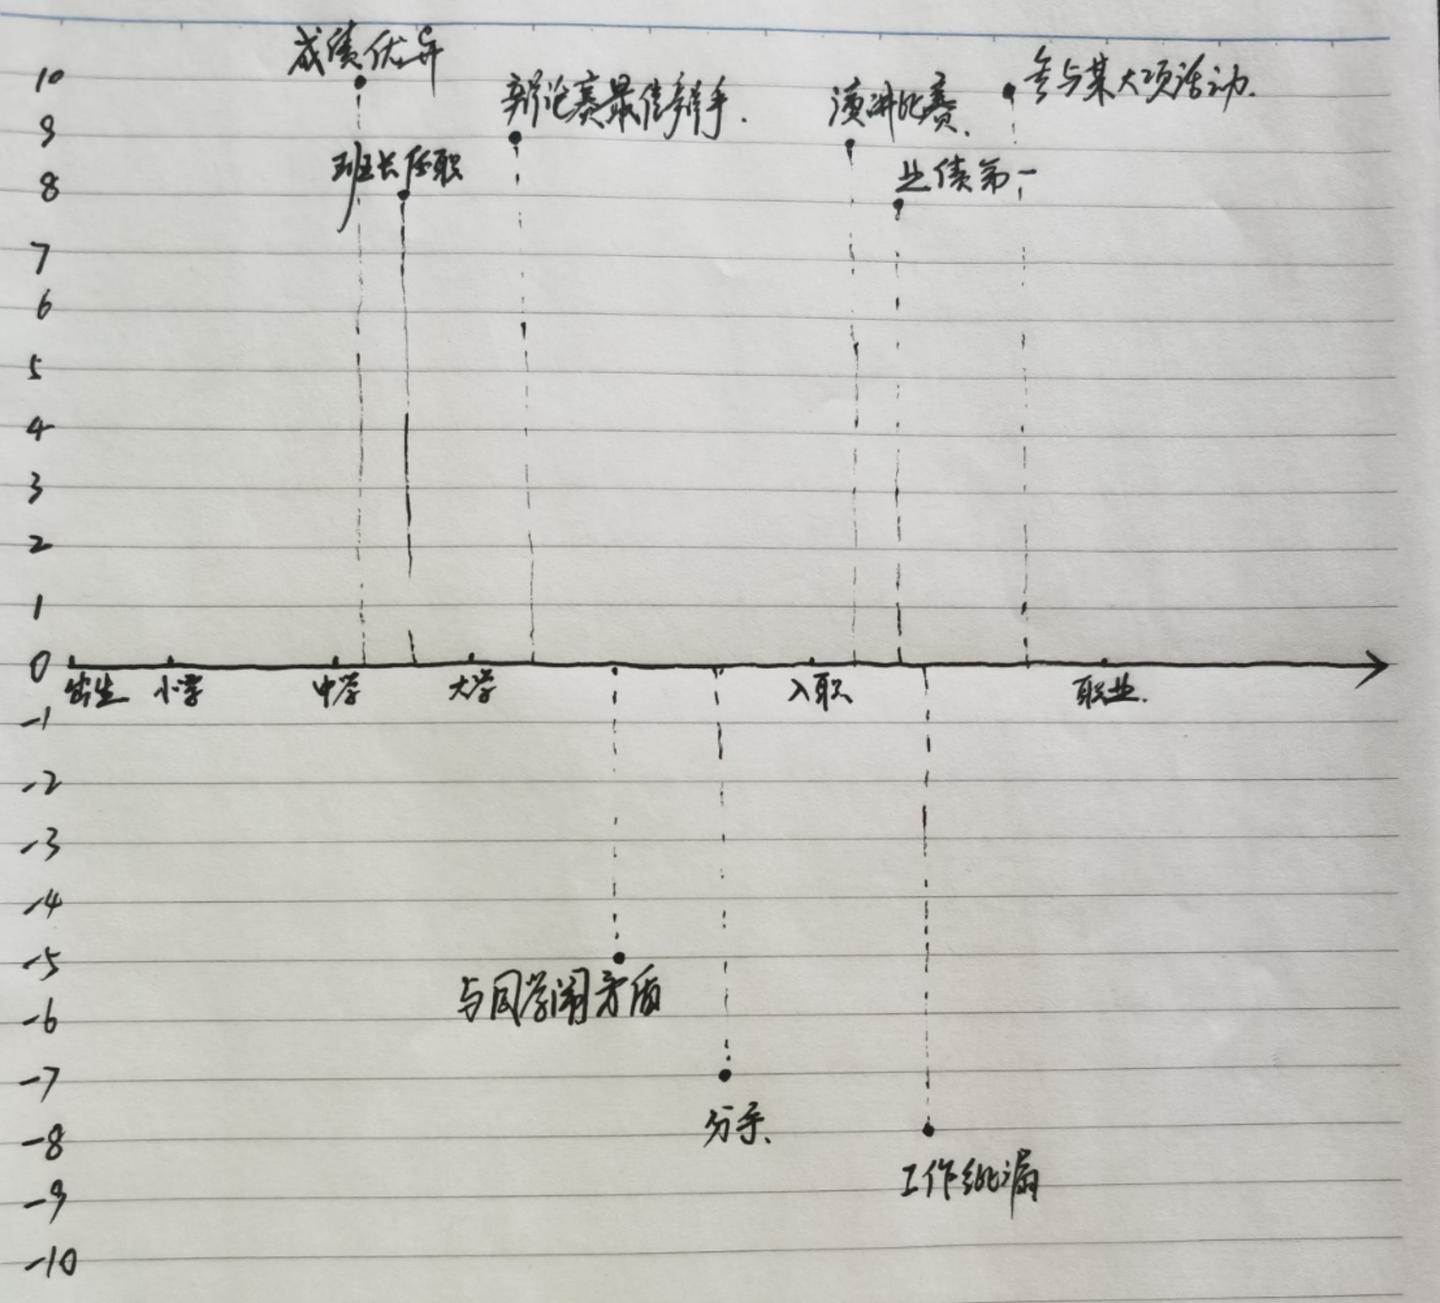 成绩优异
10
辩论赛最佳辩手.
演讲比赛.
参与某大项活动.
9
班长任职
业绩第一
8
7
6
5
4
3
2
1
0
出生 小学 中学 大学 入职 职业.
-1
-2
-3
-4
-5
与同学闹矛盾
-6
-7
分手.
-8
工作纰漏
-9
-10